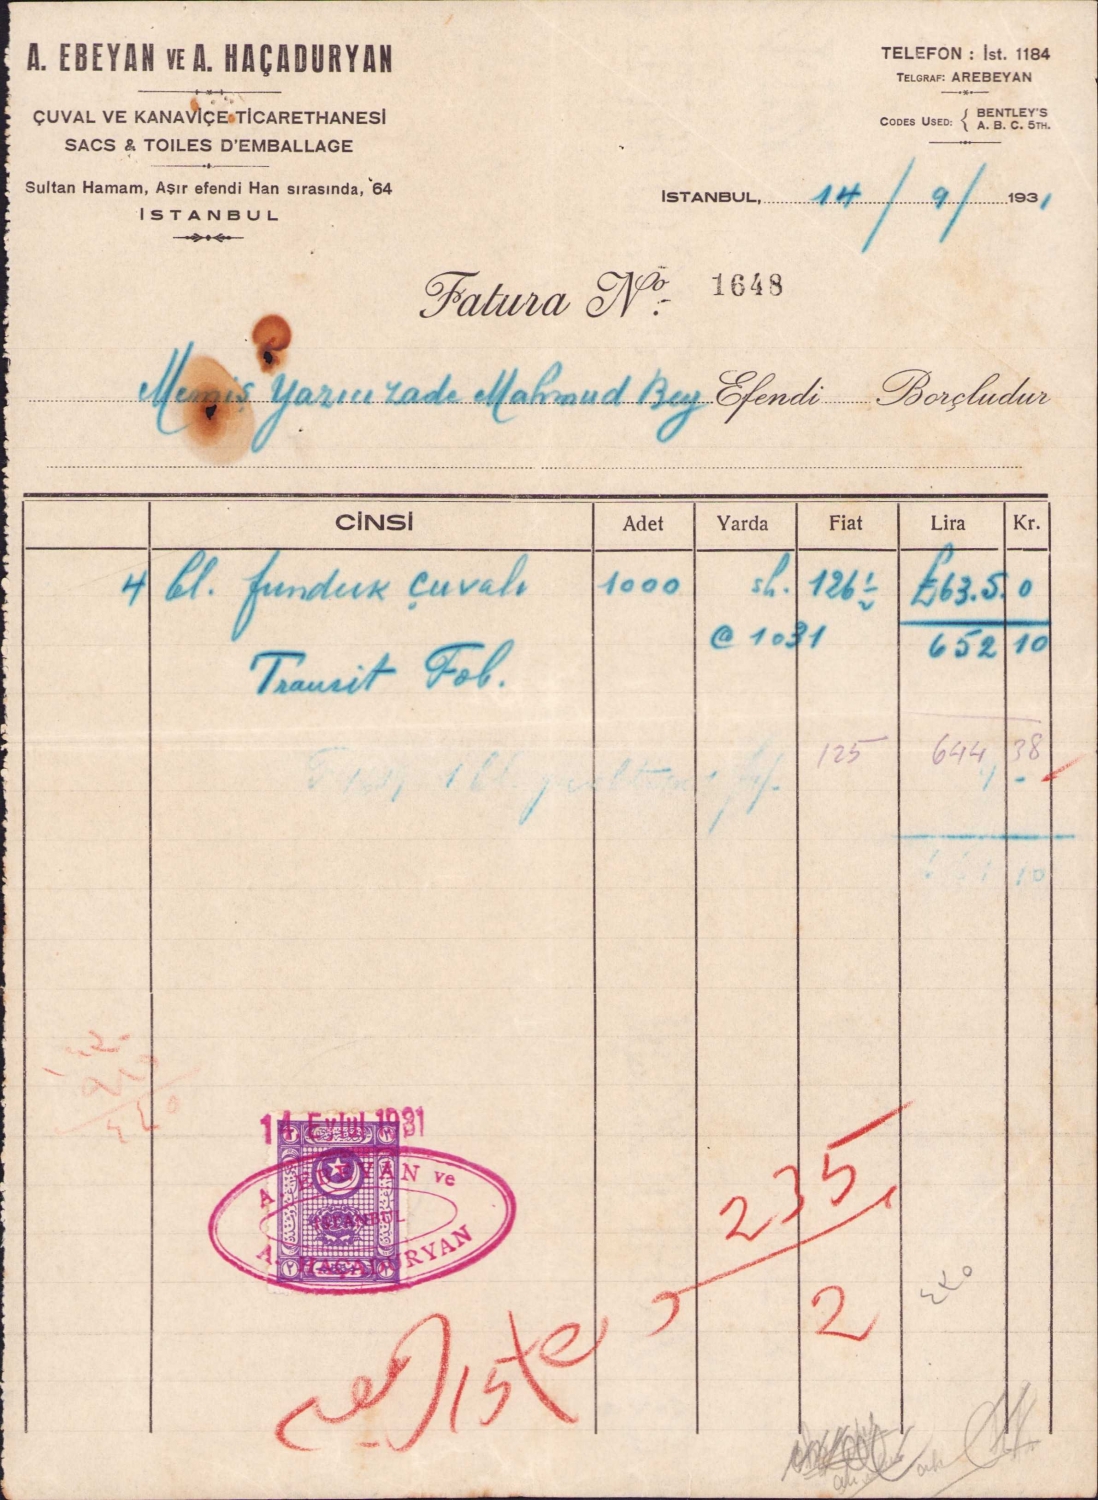 A. EBEYAN VE A. HAÇADURYAN
ÇUVAL VE KANAVİÇE TİCARETHANESİ
SACS & TOILES D'EMBALLAGE
Sultan Hamam, Aşır efendi Han sırasında, 64
İSTANBUL
TELEFON : İst. 1184
TELGRAF: AREBEYAN
CODES USED: { BENTLEY'S
A. B. C. 5TH.
İSTANBUL, 14/9/1931
Fatura No. 1648
Memiş Yazıcızade Mahmud Bey Efendi Borçludur
CİNSİ Adet Yarda Fiat Lira Kr.
4 bl. funduk çuvalı 1000 sh. 126½ £63.5.0
@ 1031 652 10
Transit Fob.
125 644 38
14 Eylul 1931
A. EBEYAN ve
İSTANBUL
A. HAÇADURYAN
235
2
٤٧٥